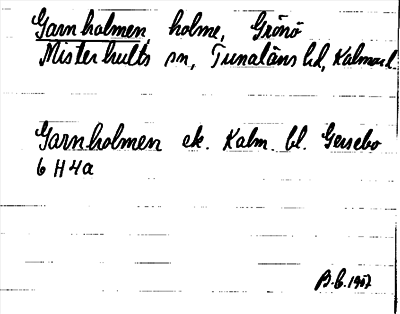 Garnholmen, holme, Grönö
Misterhults sn, Tunaläns hd, Kalmar l.
Garnholmen ek. Kalm. bl. Gersebo
6 H 4a
B.G. 1957